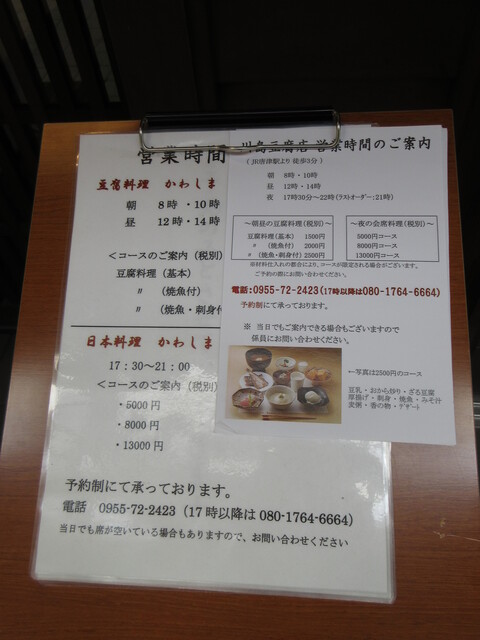 営業時間
豆腐料理 かわしま
朝 8時・10時
昼 12時・14時
<コースのご案内(税別)
豆腐料理(基本)
〃 (焼魚付)
〃 (焼魚・刺身付
日本料理 かわしま
17:30~21:00
<コースのご案内(税別)
・5000円
・8000円
・13000円
予約制にて承っております。
電話 0955-72-2423(17時以降は080-1764-6664)
当日でも席が空いている場合もありますので、お問い合わせください
川島豆腐店 営業時間のご案内
(JR唐津駅より徒歩3分)
朝 8時・10時
昼 12時・14時
夜 17時30分~22時(ラストオーダー:21時)
~朝昼の豆腐料理(税別)~
豆腐料理(基本) 1500円
〃 (焼魚付) 2000円
〃 (焼魚・刺身付) 2500円
~夜の会席料理(税別)~
5000円コース
8000円コース
13000円コース
※材料仕入れの都合により、コースが限定される場合がございます。
ご予約の際にお問い合わせください。
電話:0955-72-2423(17時以降は080-1764-6664)
予約制にて承っております。
※ 当日でもご案内できる場合もございますので
係員にお問い合わせください。
←写真は2500円のコース
豆乳・おから炒り・ざる豆腐
厚揚げ・刺身・焼魚・みそ汁
麦粥・香の物・デザート